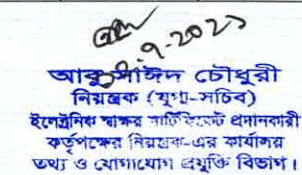 আবু সাঈদ চৌধুরী
নিয়ন্ত্রক (যুগ্ম-সচিব)
ইলেক্ট্রনিক স্বাক্ষর সার্টিফিকেট প্রদানকারী
কর্তৃপক্ষের নিয়ন্ত্রক-এর কার্যালয়
তথ্য ও যোগাযোগ প্রযুক্তি বিভাগ।